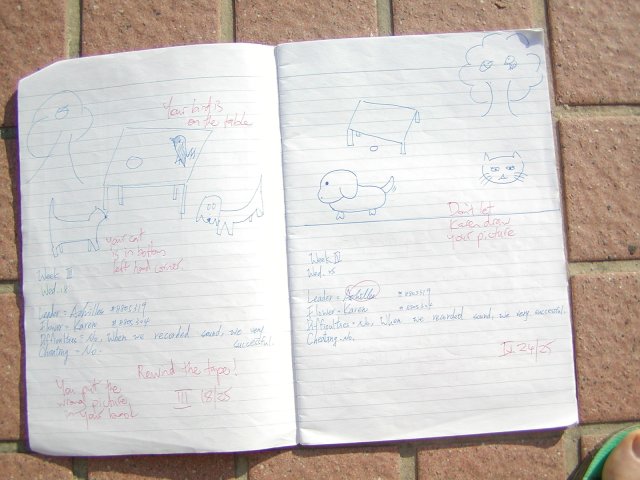 Your bird is
on the table
your cat
is in bottom
left hand corner.
Week III
Wed. 18
Leader = Achilles #8805319
Flower = Karen
Difficulties = No, When we recorded sound, we very
successful.
Cheating - No.
Rewind the tapes!
You put the
wrong pictures
in your book
III 18/25
Don't let
Karen draw
your picture
Week IV
Wed.
Leader = Achilles #8805319
Flower = Karen
Difficulties = No, When we recorded sound, we very successful.
Cheating - No.
IV 24/25